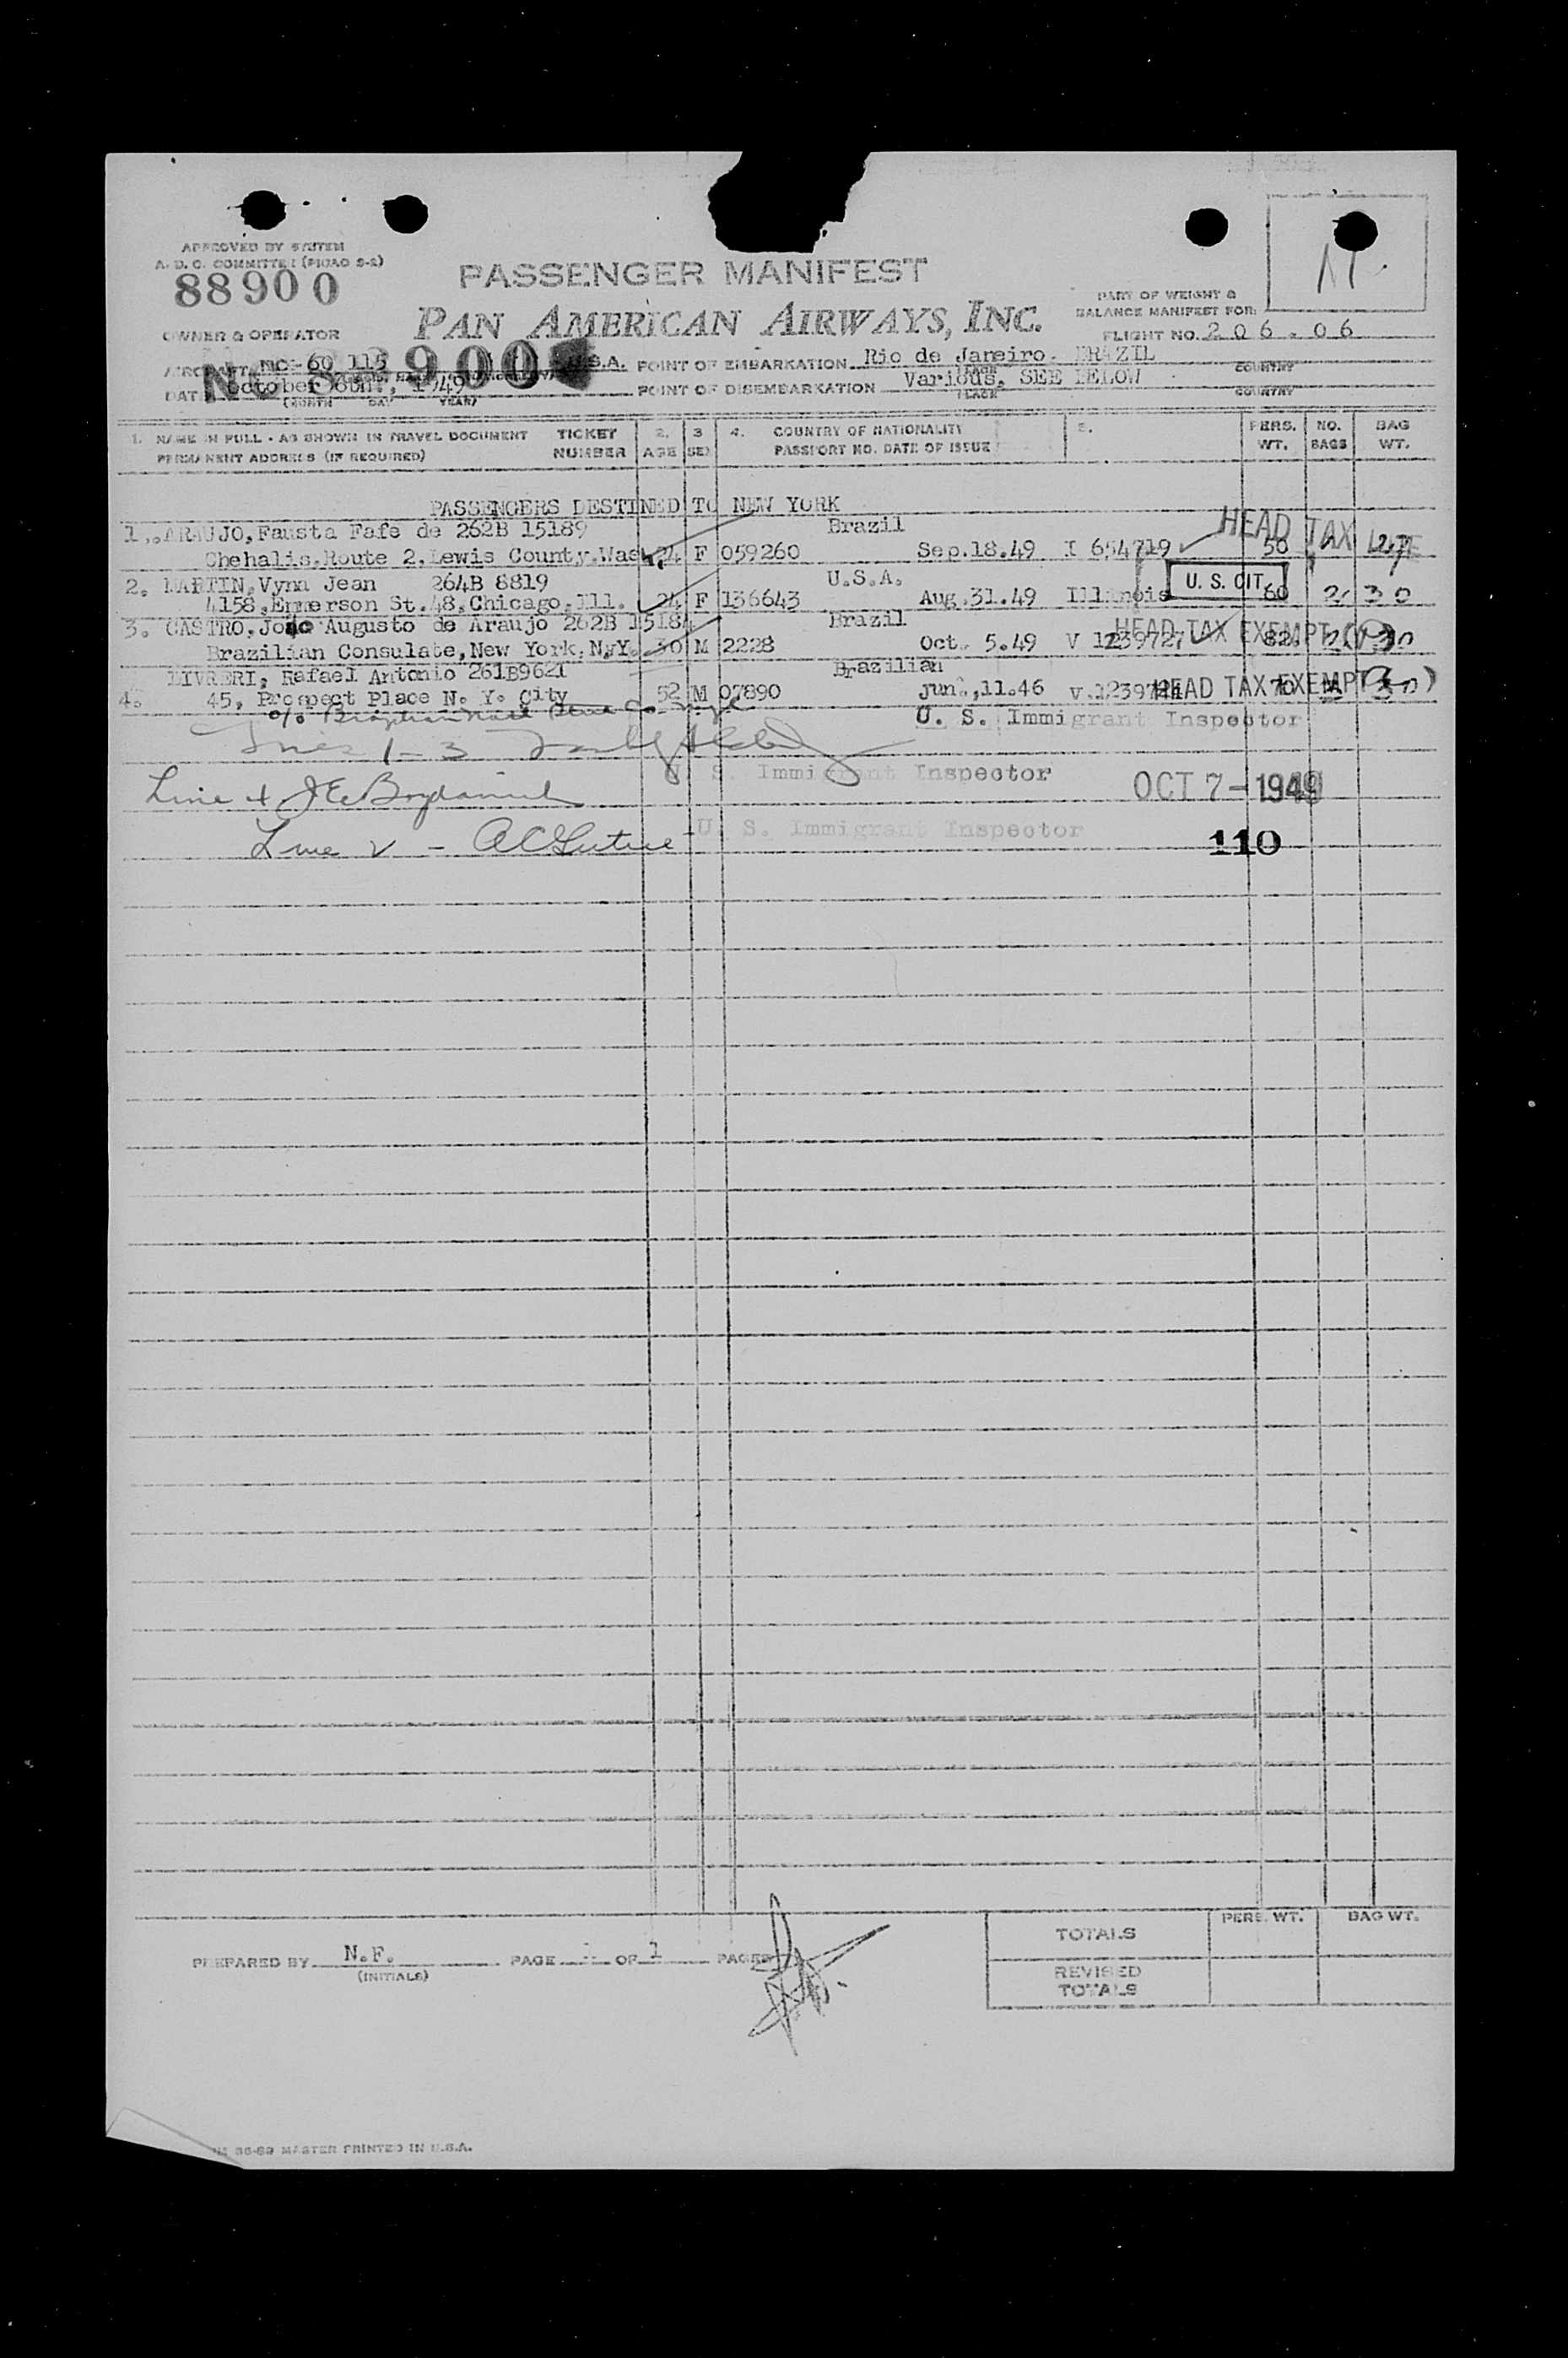 APPROVED BY SYSTEM
A. D. C. COMMITTEE (PICAO S-2)
88900
PASSENGER MANIFEST
11.
PART OF WEIGHT &
BALANCE MANIFEST FOR:
OWNER & OPERATOR PAN AMERICAN AIRWAYS, INC. FLIGHT NO. 206-06
NC-60 115 U.S.A. POINT OF EMBARKATION Rio de Janeiro. BRAZIL
PLACE COUNTRY
NC 88900
DATE October 6th, 1949 POINT OF DISEMBARKATION Various, SEE BELOW
(MONTH DAY YEAR) PLACE COUNTRY
1. NAME IN FULL - AS SHOWN IN TRAVEL DOCUMENT TICKET 2. 3 4. COUNTRY OF NATIONALITY 5. PERS. NO. BAG
PERMANENT ADDRESS (IF REQUIRED) NUMBER AGE SEX PASSPORT NO. DATE OF ISSUE WT. BAGS WT.
PASSENGERS DESTINED TO NEW YORK
1. ARAUJO, Fausta Fafe de 262B 15189 Brazil HEAD TAX
Chehalis, Route 2, Lewis County, Wash. 24 F 059260 Sep.18.49 I 654719 50
2. MARTIN, Vynn Jean 264B 8819 U.S.A. U. S. CIT.
4158, Emerson St. 48, Chicago, Ill. 24 F 136643 Aug.31.49 Illinois 60 2 30
3. CASTRO, João Augusto de Araujo 262B 15184 Brazil HEAD TAX EXEMPT
Brazilian Consulate, New York, N.Y. 30 M 2228 Oct. 5.49 V 1239727 82 2 30
LIVRERI, Rafael Antonio 261B9621 Brazilian
4. 45, Prospect Place N. Y. City 52 M 07890 Jun.,11.46 V.1239744 HEAD TAX EXEMPT 70
U. S. Immigrant Inspector
Lines 1-3
U. S. Immigrant Inspector OCT 7-1949
Line 4
Line 2 - U. S. Immigrant Inspector 110
PREPARED BY N.F. PAGE OF 1 PAGES
(INITIALS)
PERS. WT. BAG WT.
TOTALS
REVISED
TOTALS
MASTER PRINTED IN U.S.A.